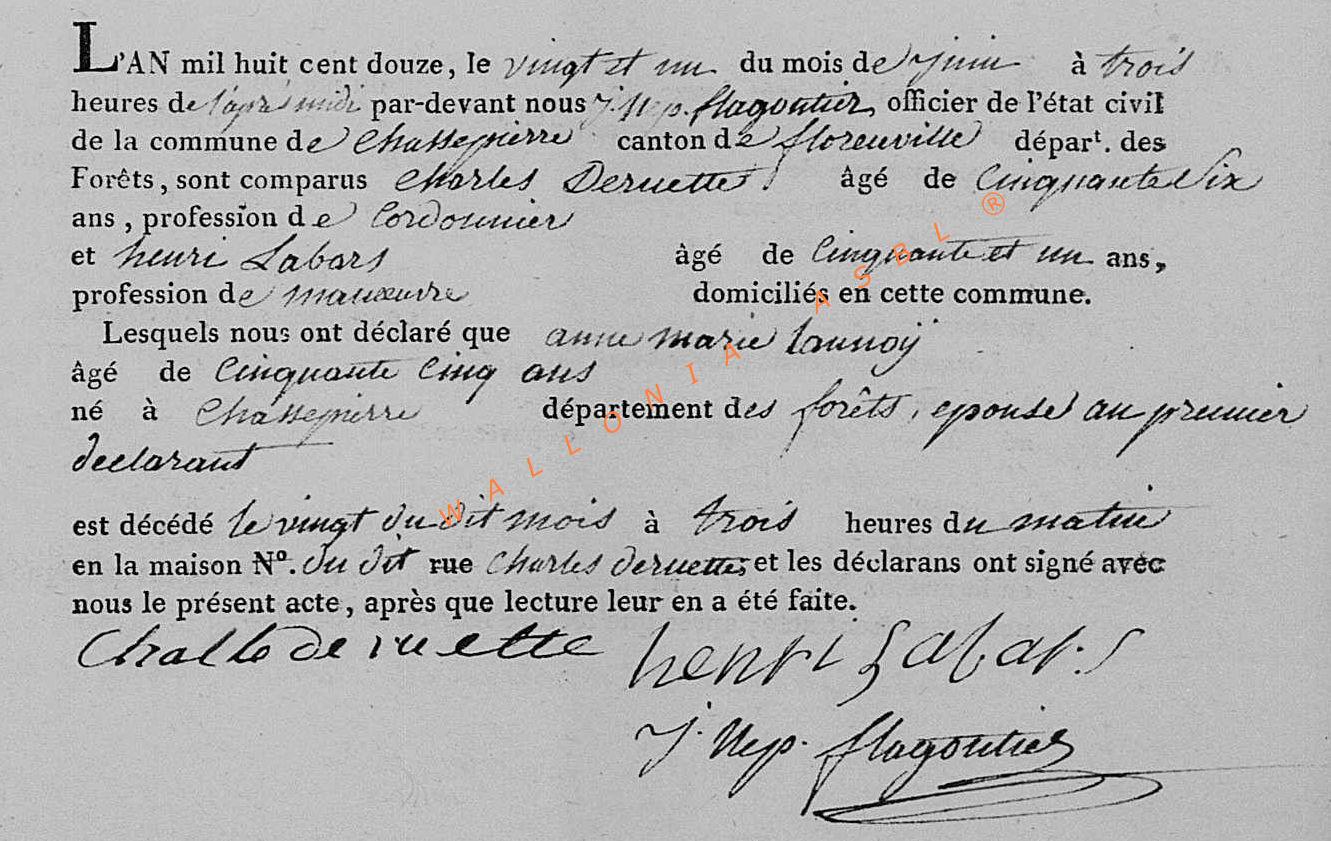 L'AN mil huit cent douze, le vingt et un du mois de juin à trois
heures de l'après midi par-devant nous J. Nep. flagontier, officier de l'état civil
de la commune de Chassepierre canton de florenville départ. des
Forêts, sont comparus Charles Deruette. âgé de Cinquante Six
ans, profession de Cordonnier
et henri Labars âgé de Cinquante et un ans,
profession de manœuvre domiciliés en cette commune.
Lesquels nous ont déclaré que anne marie Launoÿ
âgé de Cinquante Cinq ans
né à Chassepierre département des forêts, epouse au premier
declarant
est décédé le vingt du dit mois à trois heures du matin
en la maison Nº. du dit rue Charles deruette, et les déclarans ont signé avec
nous le présent acte, après que lecture leur en a été faite.
deruette henri Labars
J. Nep. flagontier
WALLONIA ASBL ®